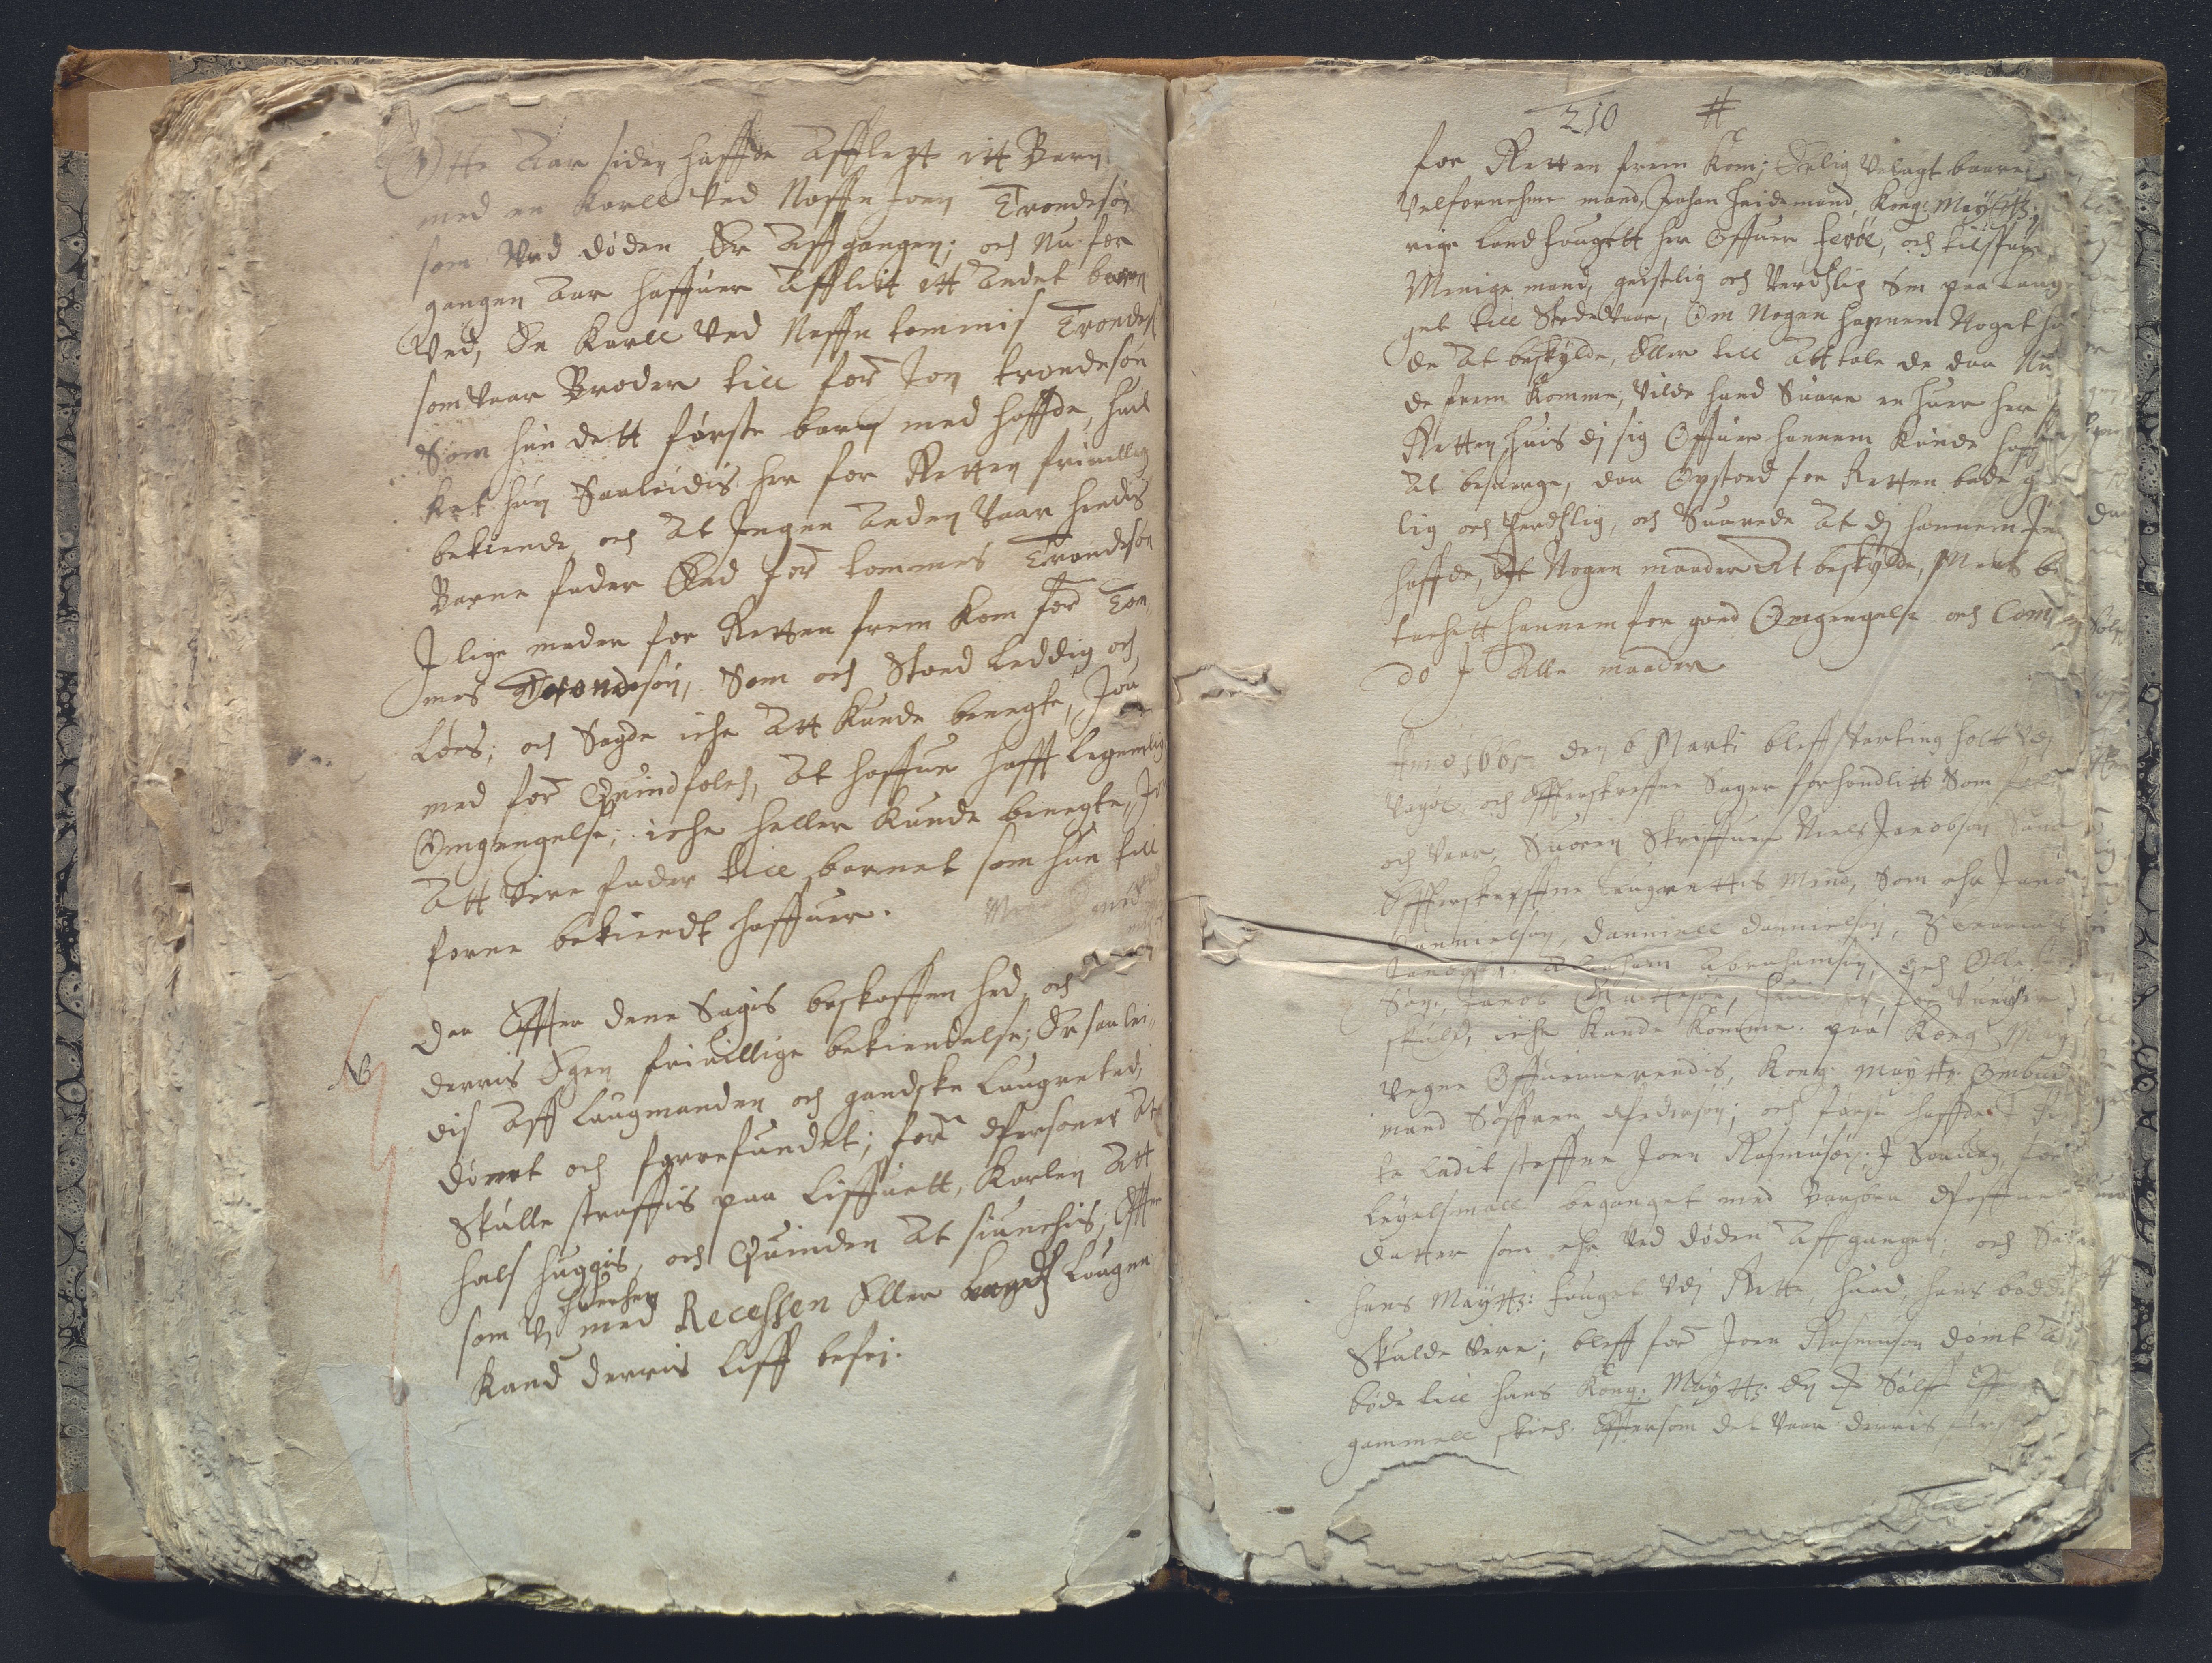 Otte Aar siden haffde Afflett itt Barn
med en Karll ved Naffn Joen Trondesøn
som ved døden Er Affgangen; och Nu for
gangen Aar haffuer Afflitt itt Andet barn
Ved, En Karll ved Naffn tommis Trondes
som vaar Broder till for Jon trondesøn
Som hun dett første barn med haffde, huil
ket hun Saaleidis her for Retten friuillig
bekiende, och At Ingen Anden Vaar hindis
Barne fader End for tommes Trondesøn
I lige mader for Retten frem kom for Tom
mes Trondesøn, Som och Stoed Leddig och
Løes; och Sagde iche Att kunde benegte, Jou
med for Quindfolch, At haffue hafft Legemlig
Omgengelse; iche heller kunde benegte, Jo
Att Vere fader till barnet som hun till
forne bekiendt haffuer.
NB
Da Effter denne Sagis beskaffen hed, och
derris Egen friuillige bekiendelse; Er saalei
dis Aff Laugmanden och gandske Laugretted
dømt och forrefundet; for Personer At
Skulle straffis paa Liffuett, Karlen Att
hals huggis, och Quinden At siunchis; Effter
huerchen
som Vj med Recessen Eller Laugen
kand derris Liff befri.
210 #
for Retten frem kom; Erlig Velagt baaren
Velfornehme mand, Johan Heidemand, Kong: Mayttz:
rige Land fougett her Offuer ferøe, och tilspurde
Menige mand, geistlig och Verdslig Som paa Laug
get till Stede Vaar, Om Nogen hannem Noget ha
de At beskylde, Eller till Att tale de daa Nu
de frem komme; Vilde hand Suare en huer her
Retten huis dj sig Offuer hannem kunde haff
At besuerge, daa Opstoed for Retten bode g
lig och Verdslig, och Suarede At dj hannem In
haffde, Nogen maader At beskylde, Mens be
tachett hannem for goed Omgengelse och Com
do J Alle maader
Anno 1661 den 6 Marti bleff Varting holt Vdj
Vagøe och Effterskreffne Sager forhandlitt Som
och Vaar, Suoren Skriffuer Niels Jacobsøn Sam
Effterskreffne Laugrettis Mend, Som ehr Jacob
Dannielsøn, Danniell Dannielsøn, Zacarias
Jacobsøn. Abraham Abrahamsøn, Och Olle
Søn. Jacob
skuld, iche kunde komme. paa Kong May
Vegne Offueruerendis, Kong: Mayttz: Ombud
mand Søffren Pedersøn; och først haffde
te Ladit steffne Joen Rasmusøn J Sandag, for
Leyelsmall beganget med Barbra
datter som ehr Ved døden Affgangen; och
hans Mayttz: fouget Vdj Rette, huad, hans bøder
Skulde Vere; bleff for Joen Rasmusøn dømt A
bøde till hans Kong: Mayttz:
gammell skich. Efftersom det Vaar derris